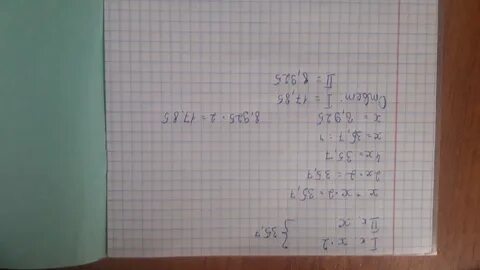 I к х · 2 } 35,7
II к х
х + х · 2 = 35,7
2х · 2 = 35,7
4х = 35,7
х = 35,7 : 4
х = 8,925 8,925 · 2 = 17,85
Ответ: I = 17,85
II = 8,925